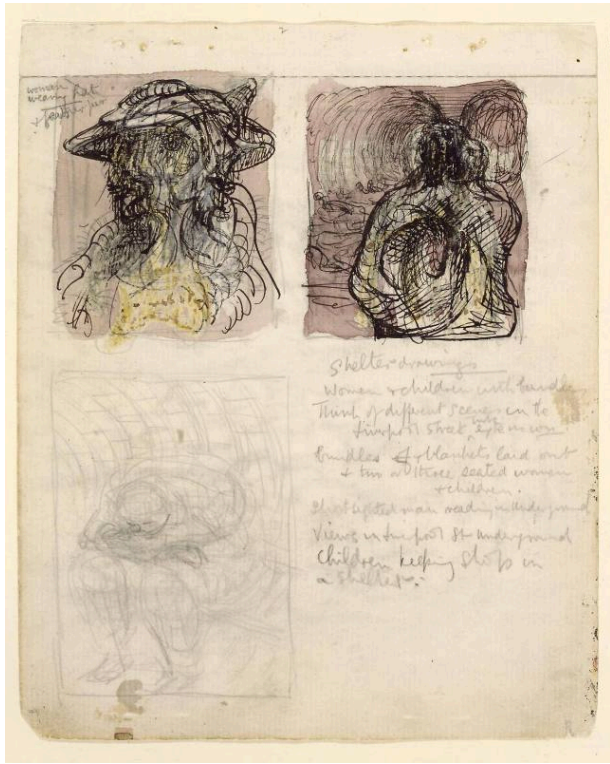 woman
wearing hat
& feather fur
Shelter drawings
Women & children with bundles
Think of different scenes in the
Liverpool Street extension
bundles & blankets laid out
& two or three seated women
& children.
Short sighted man reading in Underground
Views in Liverpool St Underground
Children keeping shops in
a shelter.